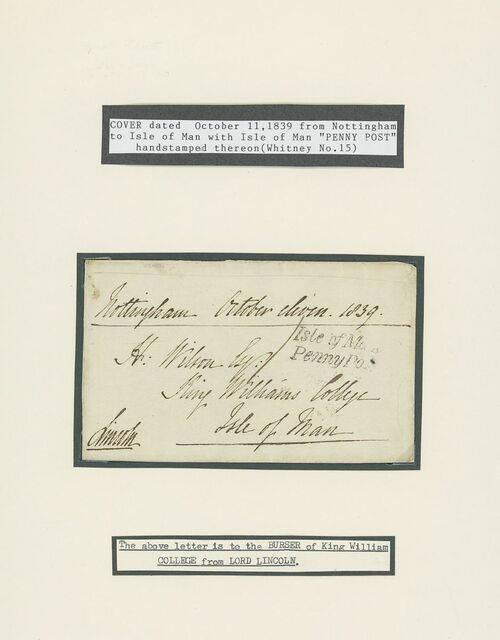 COVER dated October 11,1839 from Nottingham
to Isle of Man with Isle of Man "PENNY POST"
handstamped thereon(Whitney No.15)
Nottingham October eleven. 1839.
Isle of M
Penny Po
H: Wilson Esq:
King Williams College
Isle of Man
Lincoln
The above letter is to the BURSER of King William
COLLEGE from LORD LINCOLN.